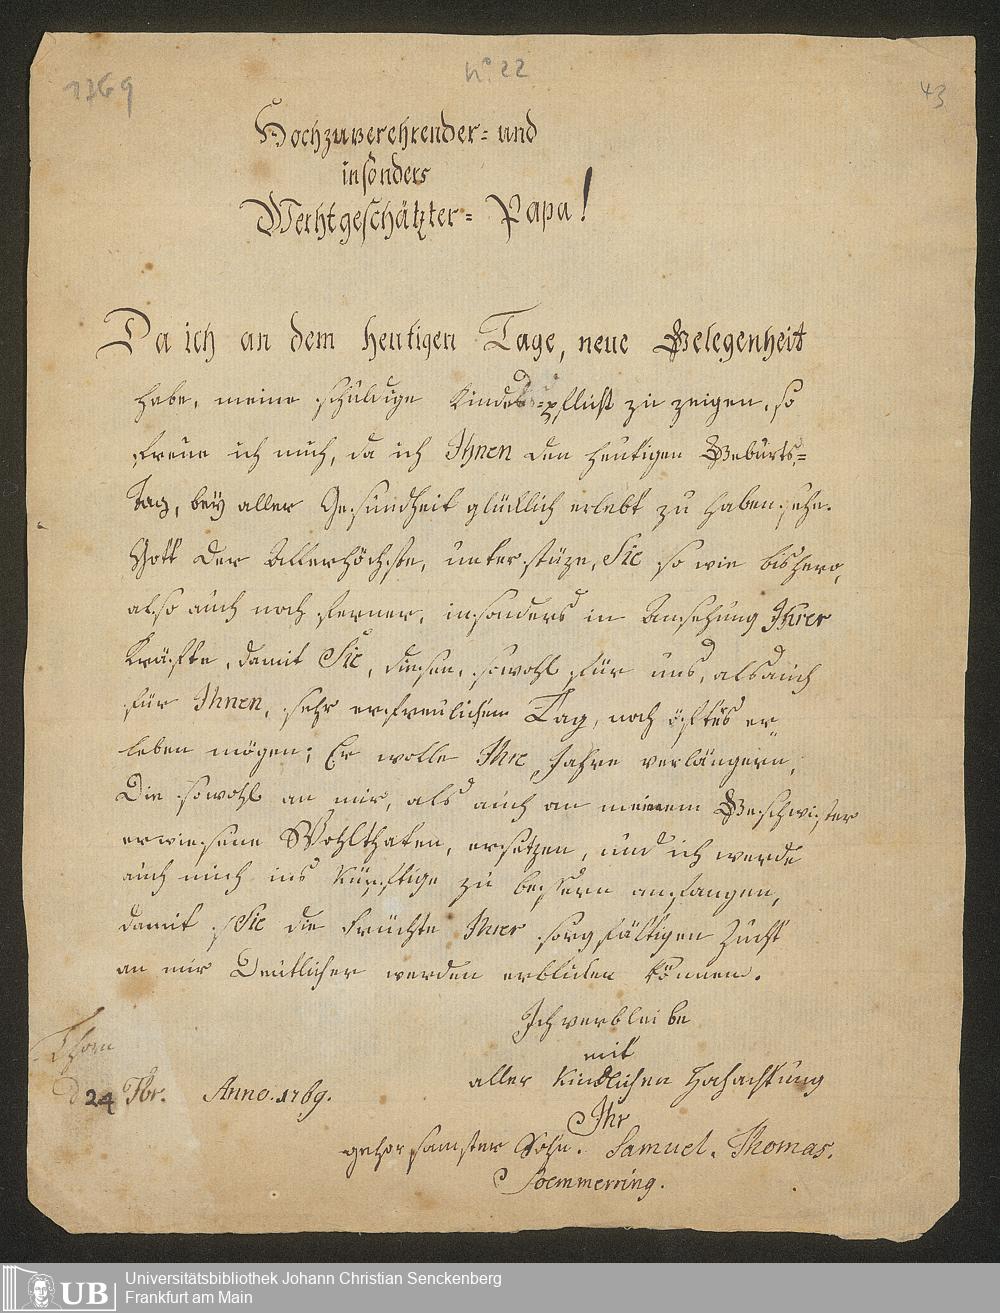 1769
No 22
43
Hochzuverehrender- und
insonders
Werhtgeschätzter- Papa!
Da ich an dem heutigen Tage, neue Gelegenheit
habe, meine schuldige Kindes-pflicht zu zeigen, so
freue ich mich, da ich Ihnen den heutigen Geburts-
Tag, bey aller Gesundheit glücklich erlebt zu haben sehe.
Gott der Allerhöchste, unterstüze, Sie so wie bishero,
also auch noch ferner, insonders in Ansehung Ihrer
Kräfte, damit Sie, diesen, sowohl für uns, als auch
für Ihnen, sehr erfreulichen Tag, noch öfters er
leben mögen; Er wolle Ihre Jahre verlängern,
Die sowohl an mir, als auch an meinem Geschwister
erwiesene Wohlthaten, ersetzen, und ich werde
auch mich ins Künftige zu bessern anfangen,
damit Sie die Früchte Ihrer sorgfältigen Zucht
an mir Deutlicher werden erblicken können.
Ich verbleibe
mit
aller Kindlichen Hochachtung
Thorn
d 24 7br. Anno. 1769.
Ihr
gehorsamster Sohn. Samuel. Thomas.
Soemmerring.
UB
Universitätsbibliothek Johann Christian Senckenberg
Frankfurt am Main